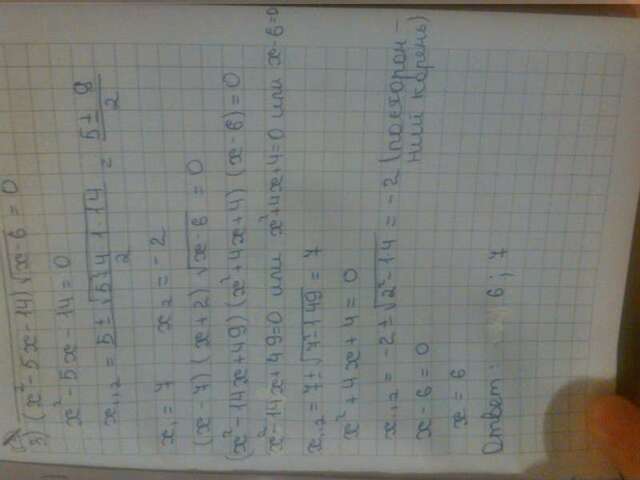 3) (x²-5x-14)√x-6 = 0
x²-5x-14=0
x₁,₂ = 5±√5+4·1·14 / 2 = 5±9 / 2
x₁=7 x₂=-2
(x-7)(x+2)√x-6 = 0
(x²-14x+49)(x²+4x+4)(x-6)=0
x²-14x+49=0 или x²+4x+4=0 или x-6=0
x₁,₂=7±√7²-1·49=7
x²+4x+4=0
x₁,₂=-2±√2²-1·4=-2 (посторон-
ний корень)
x-6=0
x=6
Ответ: 6; 7